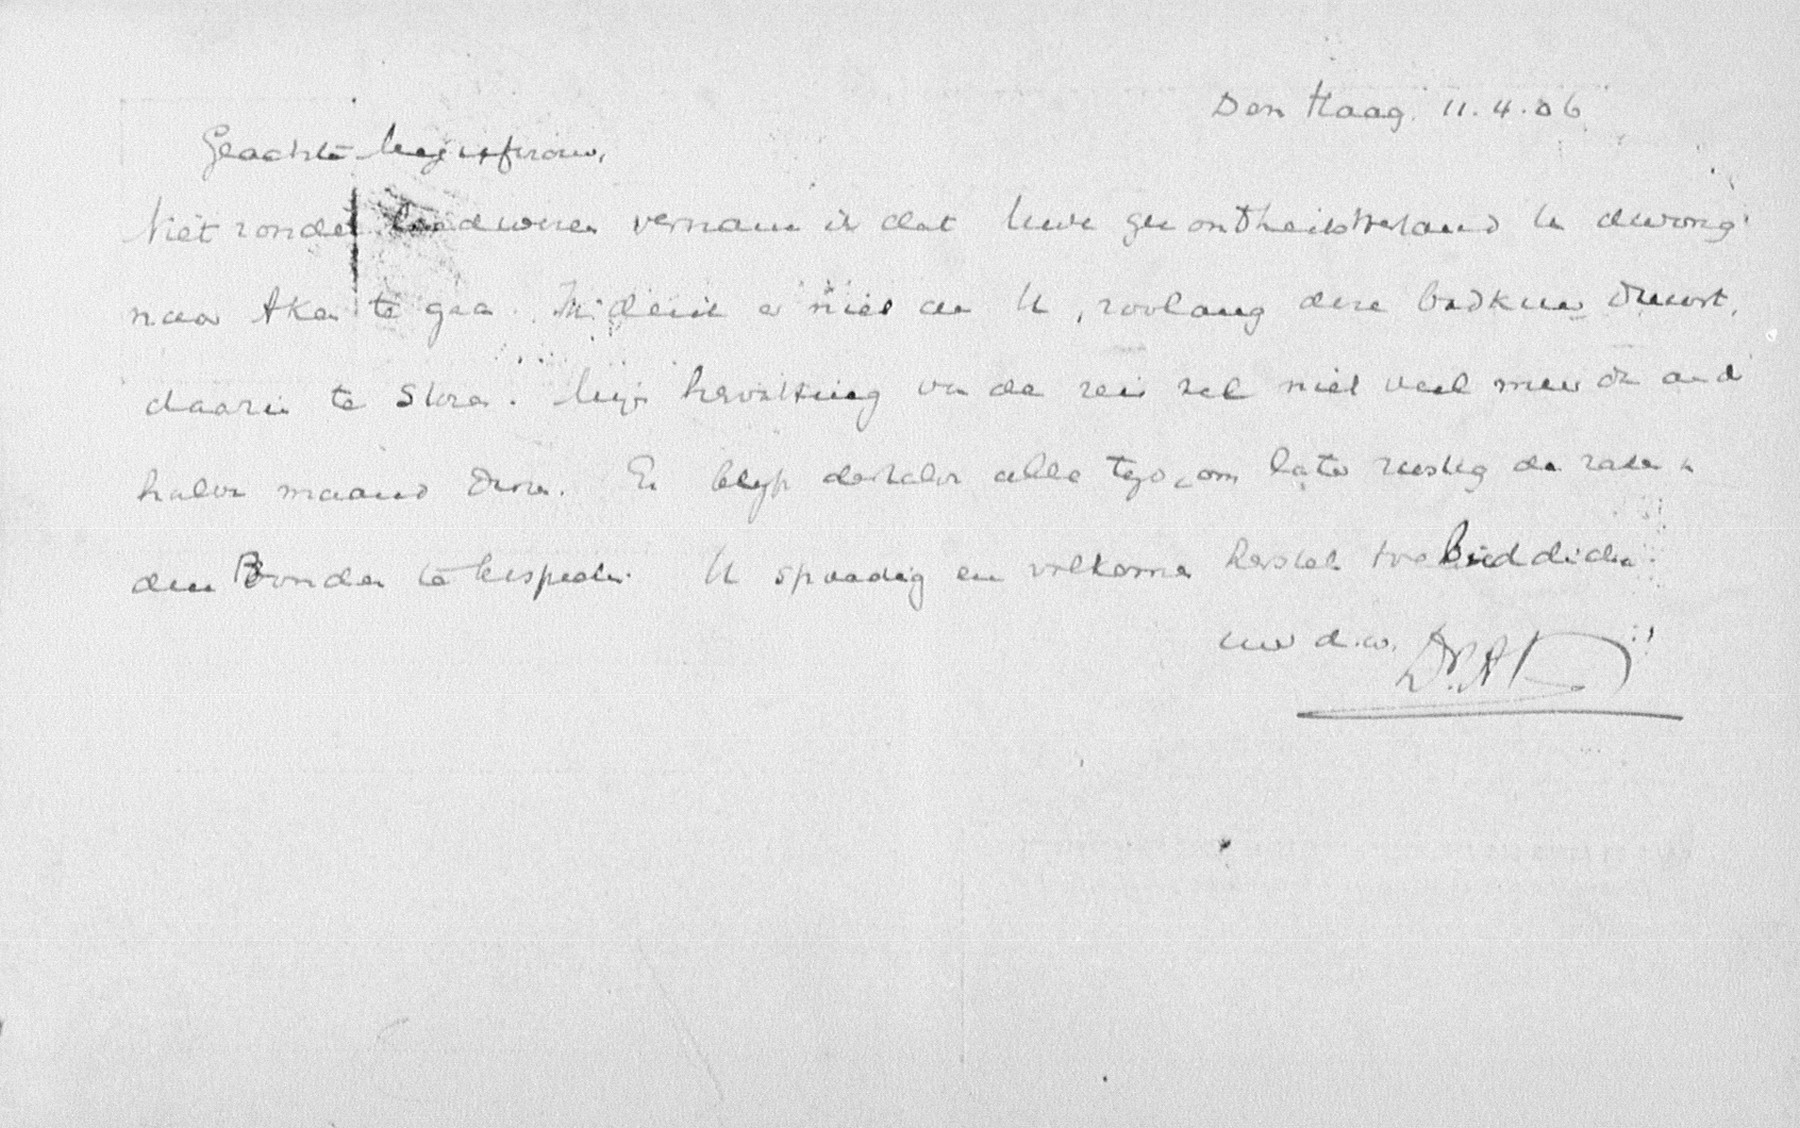 Den Haag 11.4.06
Geachte Mejuffrouw,
Niet zonder leedwezen vernam ik dat Uwe gezondheidstoestand U dwong
naar Aken te gaan. Mij dient er niet aan U, zoolang deze badkuur duurt,
daarin te storen. Mijn hervatting van de reis zal niet veel meer dan ander
halve maand duren. Er blijft derhalve alle tijd, om later rustig de zaken
den Bonden te bespreken. U spoedig en volkomen herstel toe
uw d.w. Dr. A